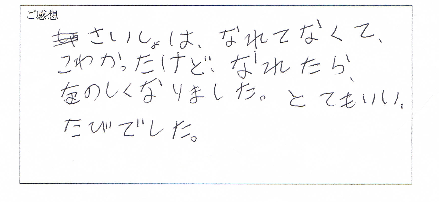 ご感想
さいしょは、なれてなくて、
こわかったけど、なれたら、
たのしくなりました。とてもいい、
たびでした。